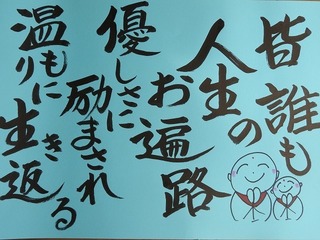 皆誰も
人生の
お遍路
優しさに
励まされ
温もりに
生き返る